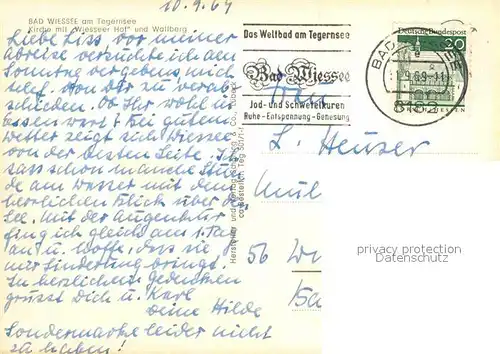 10.9.69
BAD WIESSEE am Tegernsee
Kirche mit "Wiesseer Hof" und Wallberg
Liebe Liss, vor meiner
Abreise versuchte ich den
Sonntag vergebens, mich
telef. von Dir zu verab-
schieden. Ob Ihr wohl in
Essen wart? Bei gutem
Wetter zeigt sich Wiessee
von der besten Seite. Ich
sass schon manche Stun-
de am Wasser mit dem
herrlichen Blick über den
See. Mit der Augenkur
fing ich gleich am 1. Tag
an u. hoffe, dass sie
mir Linderung bringt.
In herzlichem Gedenken
grüsst Dich u. Karl
Deine Hilde
Sondermarke leider nicht
zu haben!
Das Weltbad am Tegernsee
Bad Wiessee
Jod- und Schwefelkuren
Ruhe - Entspannung - Genesung
Deutsche Bundespost
20
BAD
8182
L. Heuser
56
privacy protection
Datenschutz